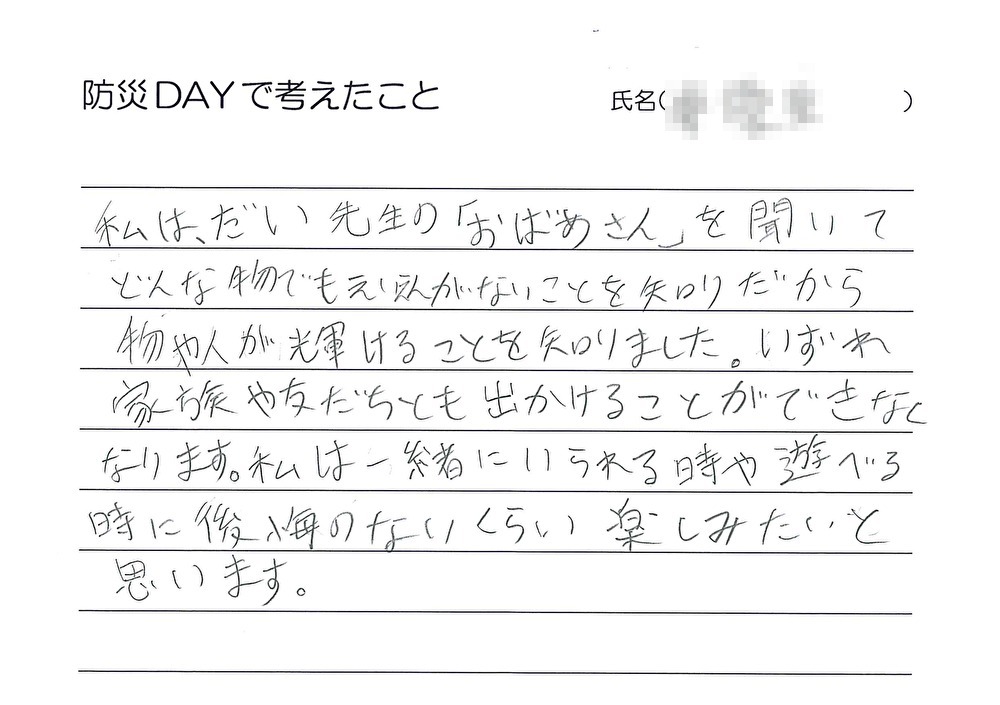 防災DAYで考えたこと 氏名( )
私は、だい先生の「おばあさん」を聞いて
どんな物でも永遠がないことを知りだから
物や人が輝けることを知りました。いずれ
家族や友だちとも出かけることができなく
なります。私は一緒にいられる時や遊べる
時に後悔のないくらい楽しみたいと
思います。